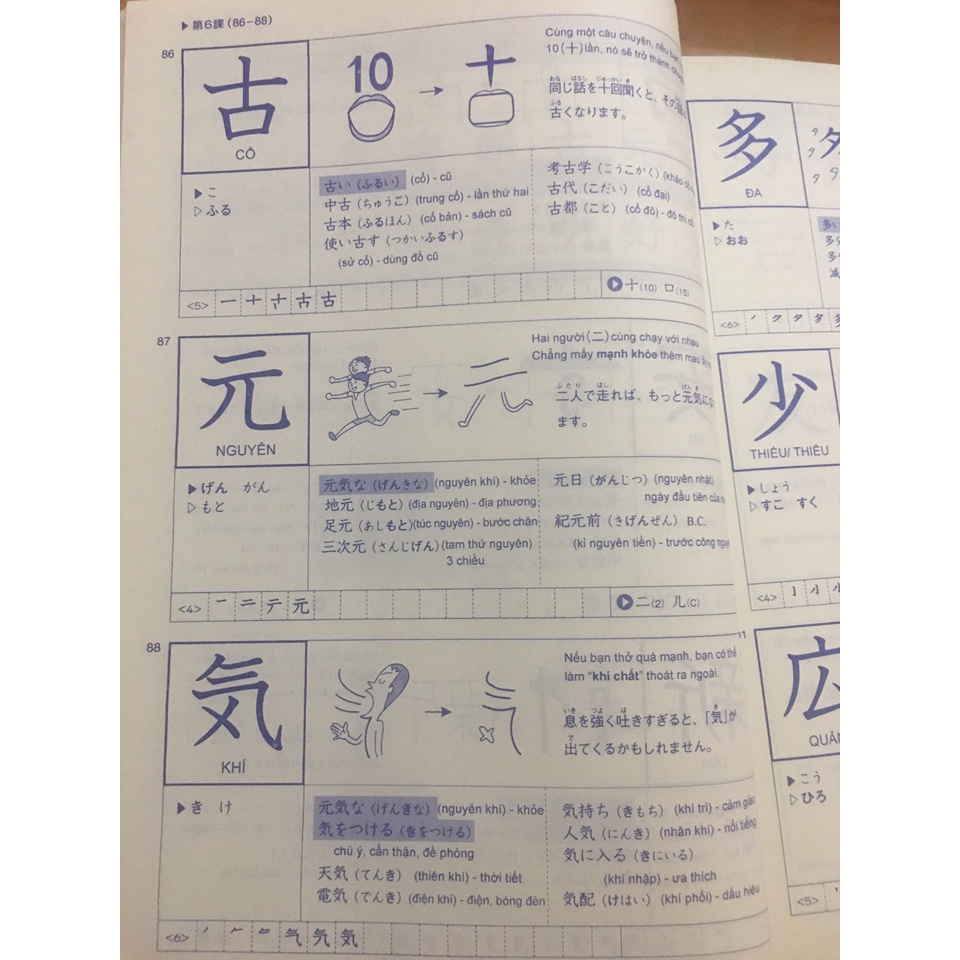 ▶第6課(86-88)
86
古
CỔ
10 → 十
Cùng một câu chuyện, nếu
10 (十) lần, nó sẽ trở thành
おな はなし じゅっかい き
同じ話を十回聞くと、その
ふる
古くなります。
▶こ
▷ふる
古い (ふるい) (cổ) - cũ
中古 (ちゅうこ) (trung cổ) - lần thứ hai
古本 (ふるほん) (cổ bản) - sách cũ
使い古す (つかいふるす)
(sử cổ) - dùng đồ cũ
考古学 (こうこがく)
古代 (こだい) (cổ đại)
古都 (こと) (cổ đô) - đô thị cổ
<5> 一 十 古 古
十(10) 口(15)
87
元
NGUYÊN
Hai người (二) cùng chạy với nhau
Chẳng mấy mạnh khỏe thêm mau
ふたり はし げんき
二人で走れば、もっと元気にな
ます。
▶げん がん
▷もと
元気な (げんきな) (nguyên khí) - khỏe
地元 (じもと) (địa nguyên) - địa phương
足元 (あしもと)(túc nguyên) - bước chân
三次元 (さんじげん) (tam thứ nguyên)
3 chiều
元日 (がんじつ) (nguyên nhật)
ngày đầu tiên của
紀元前 (きげんぜん) B.C.
(kỉ nguyên tiền) - trước công
<4> 一 二 テ 元
二(2) 儿(C)
88
気
KHÍ
Nếu bạn thở quá mạnh, bạn có thể
làm "khí chất" thoát ra ngoài.
いき つよ は き
息を強く吐きすぎると、「気」が
で
出てくるかもしれません。
▶き け
元気な (げんきな) (nguyên khí) - khỏe
気をつける (きをつける)
chú ý, cẩn thận, đề phòng
天気 (てんき) (thiên khí) - thời tiết
電気 (でんき) (điện khí) - điện, bóng đèn
気持ち (きもち) (khí trì) - cảm giác
人気 (にんき) (nhân khí) - nổi tiếng
気に入る (きにいる)
(khí nhập) - ưa thích
気配 (けはい) (khí phối) - dấu hiệu
<6> 气 気 気
多
ĐA
▶た
▷おお
多い
多
<6>
少
THIẾU/ THIỂU
▶しょう
▷すこ すく
<4>
広
▶こう
▷ひろ
<5>